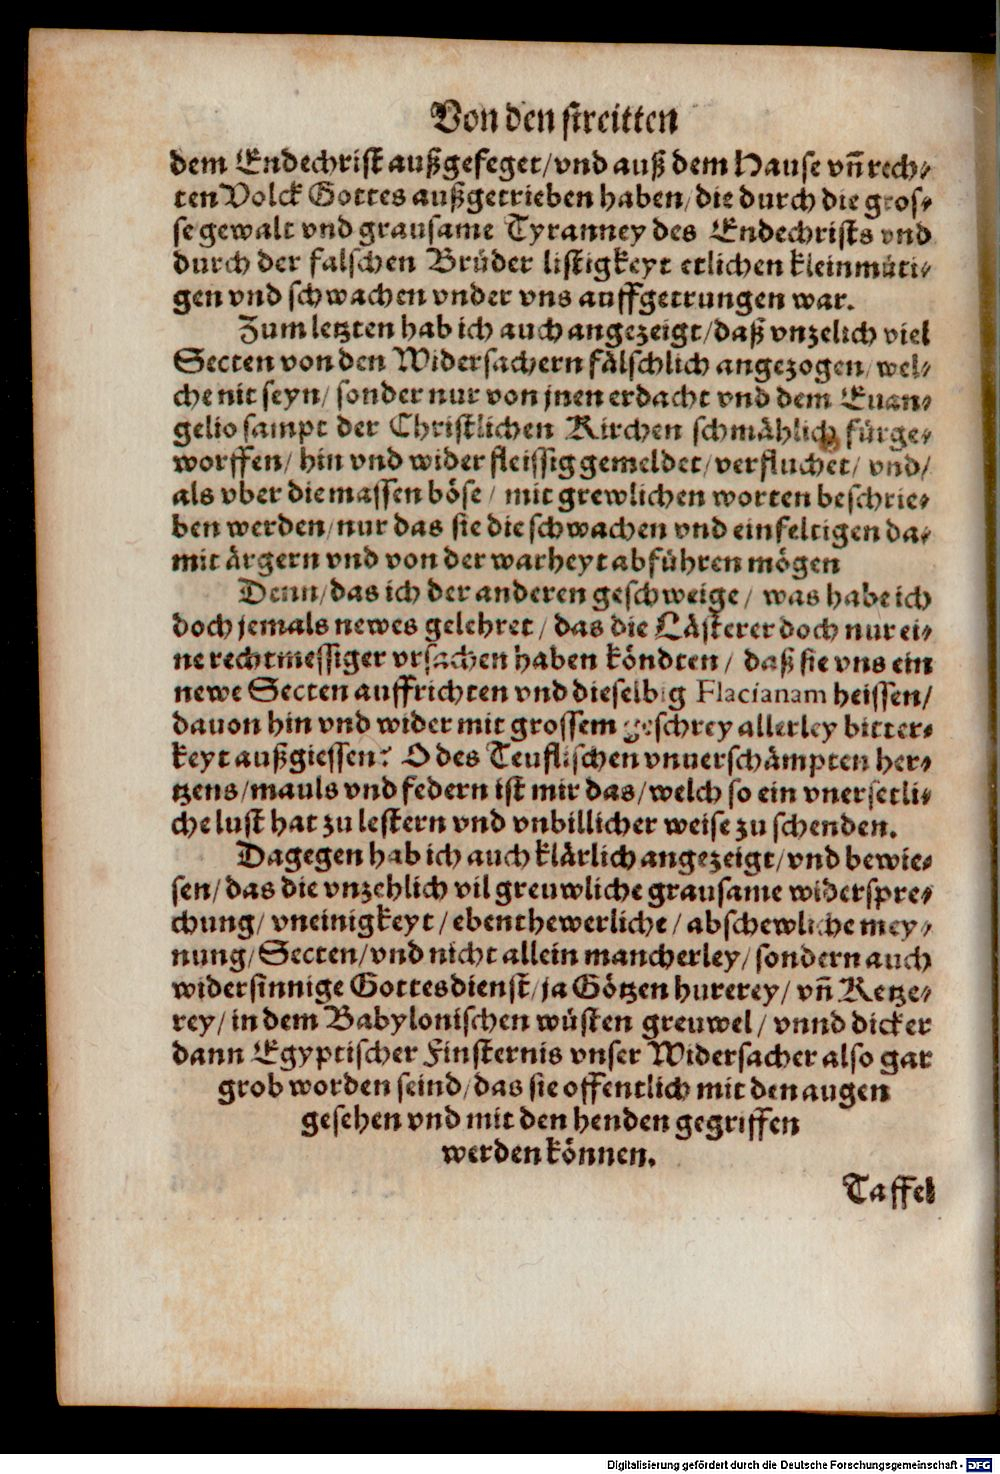 Von den streitten
dem Endechrist außgefeget/vnd auß dem Hause vñ rech⸗
ten Volck Gottes außgetrieben haben/die durch die gros⸗
se gewalt vnd grausame Tyranney des Endechrists vnd
durch der falschen Brüder listigkeyt etlichen kleinmüti⸗
gen vnd schwachen vnder vns auffgetrungen war.
Zum letzten hab ich auch angezeigt/daß vnzelich viel
Secten von den Widersachern fälschlich angezogen/wel⸗
che nit seyn/ sonder nur von jnen erdacht vnd dem Euan⸗
gelio sampt der Christlichen Kirchen schmählich fürge⸗
worffen/ hin vnd wider fleissig gemeldet/verfluchet/ vnd/
als vber die massen böse/ mit grewlichen worten beschrie⸗
ben werden/nur das sie die schwachen vnd einfeltigen da⸗
mit ärgern vnd von der warheyt abführen mögen
Denn/das ich der anderen geschweige/ was habe ich
doch jemals newes gelehret/ das die Lästerer doch nur ei⸗
ne rechtmessiger vrsachen haben köndten/ daß sie vns ein
newe Secten auffrichten vnd dieselbig Flacianam heissen/
dauon hin vnd wider mit grossem geschrey allerley bitter⸗
keyt außgiessen? O des Teuflischen vnuerschämpten her⸗
tzens/mauls vnd federn ist mir das/welch so ein vnersetli⸗
che lust hat zu lestern vnd vnbillicher weise zu schenden.
Dagegen hab ich auch klärlich angezeigt/vnd bewie⸗
sen/das die vnzehlich vil greuwliche grausame widerspre⸗
chung/ vneinigkeyt/ebenthewerliche/abschewliche mey⸗
nung/Secten/vnd nicht allein mancherley/sondern auch
widersinnige Gottesdienst/ja Götzen hurerey/ vñ Ketze⸗
rey/in dem Babylonischen wüsten greuwel/ vnnd dicker
dann Egyptischer Finsternis vnser Widersacher also gar
grob worden seind/das sie offentlich mit den augen
gesehen vnd mit den henden gegriffen
werden können.
Taffel
Digitalisierung gefördert durch die Deutsche Forschungsgemeinschaft - DFG